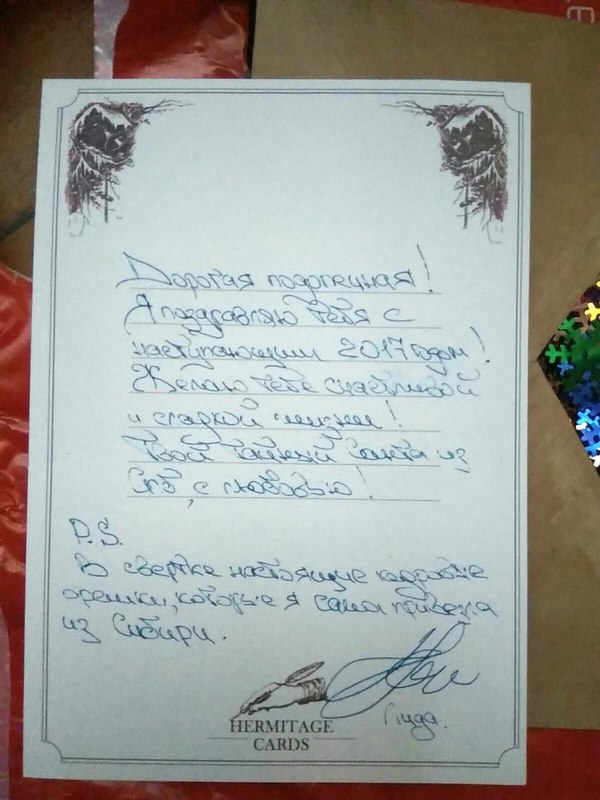 Дорогая подопечная!
Я поздравляю тебя с
наступающим 2017 годом!
Желаю тебе счастливой
и сладкой жизни!
Твой Тайный Санта из
СПб, с любовью!
P.S.
В свертке настоящие кедровые
орешки, которые я сама привезла
из Сибири.
HERMITAGE
CARDS
Лида.